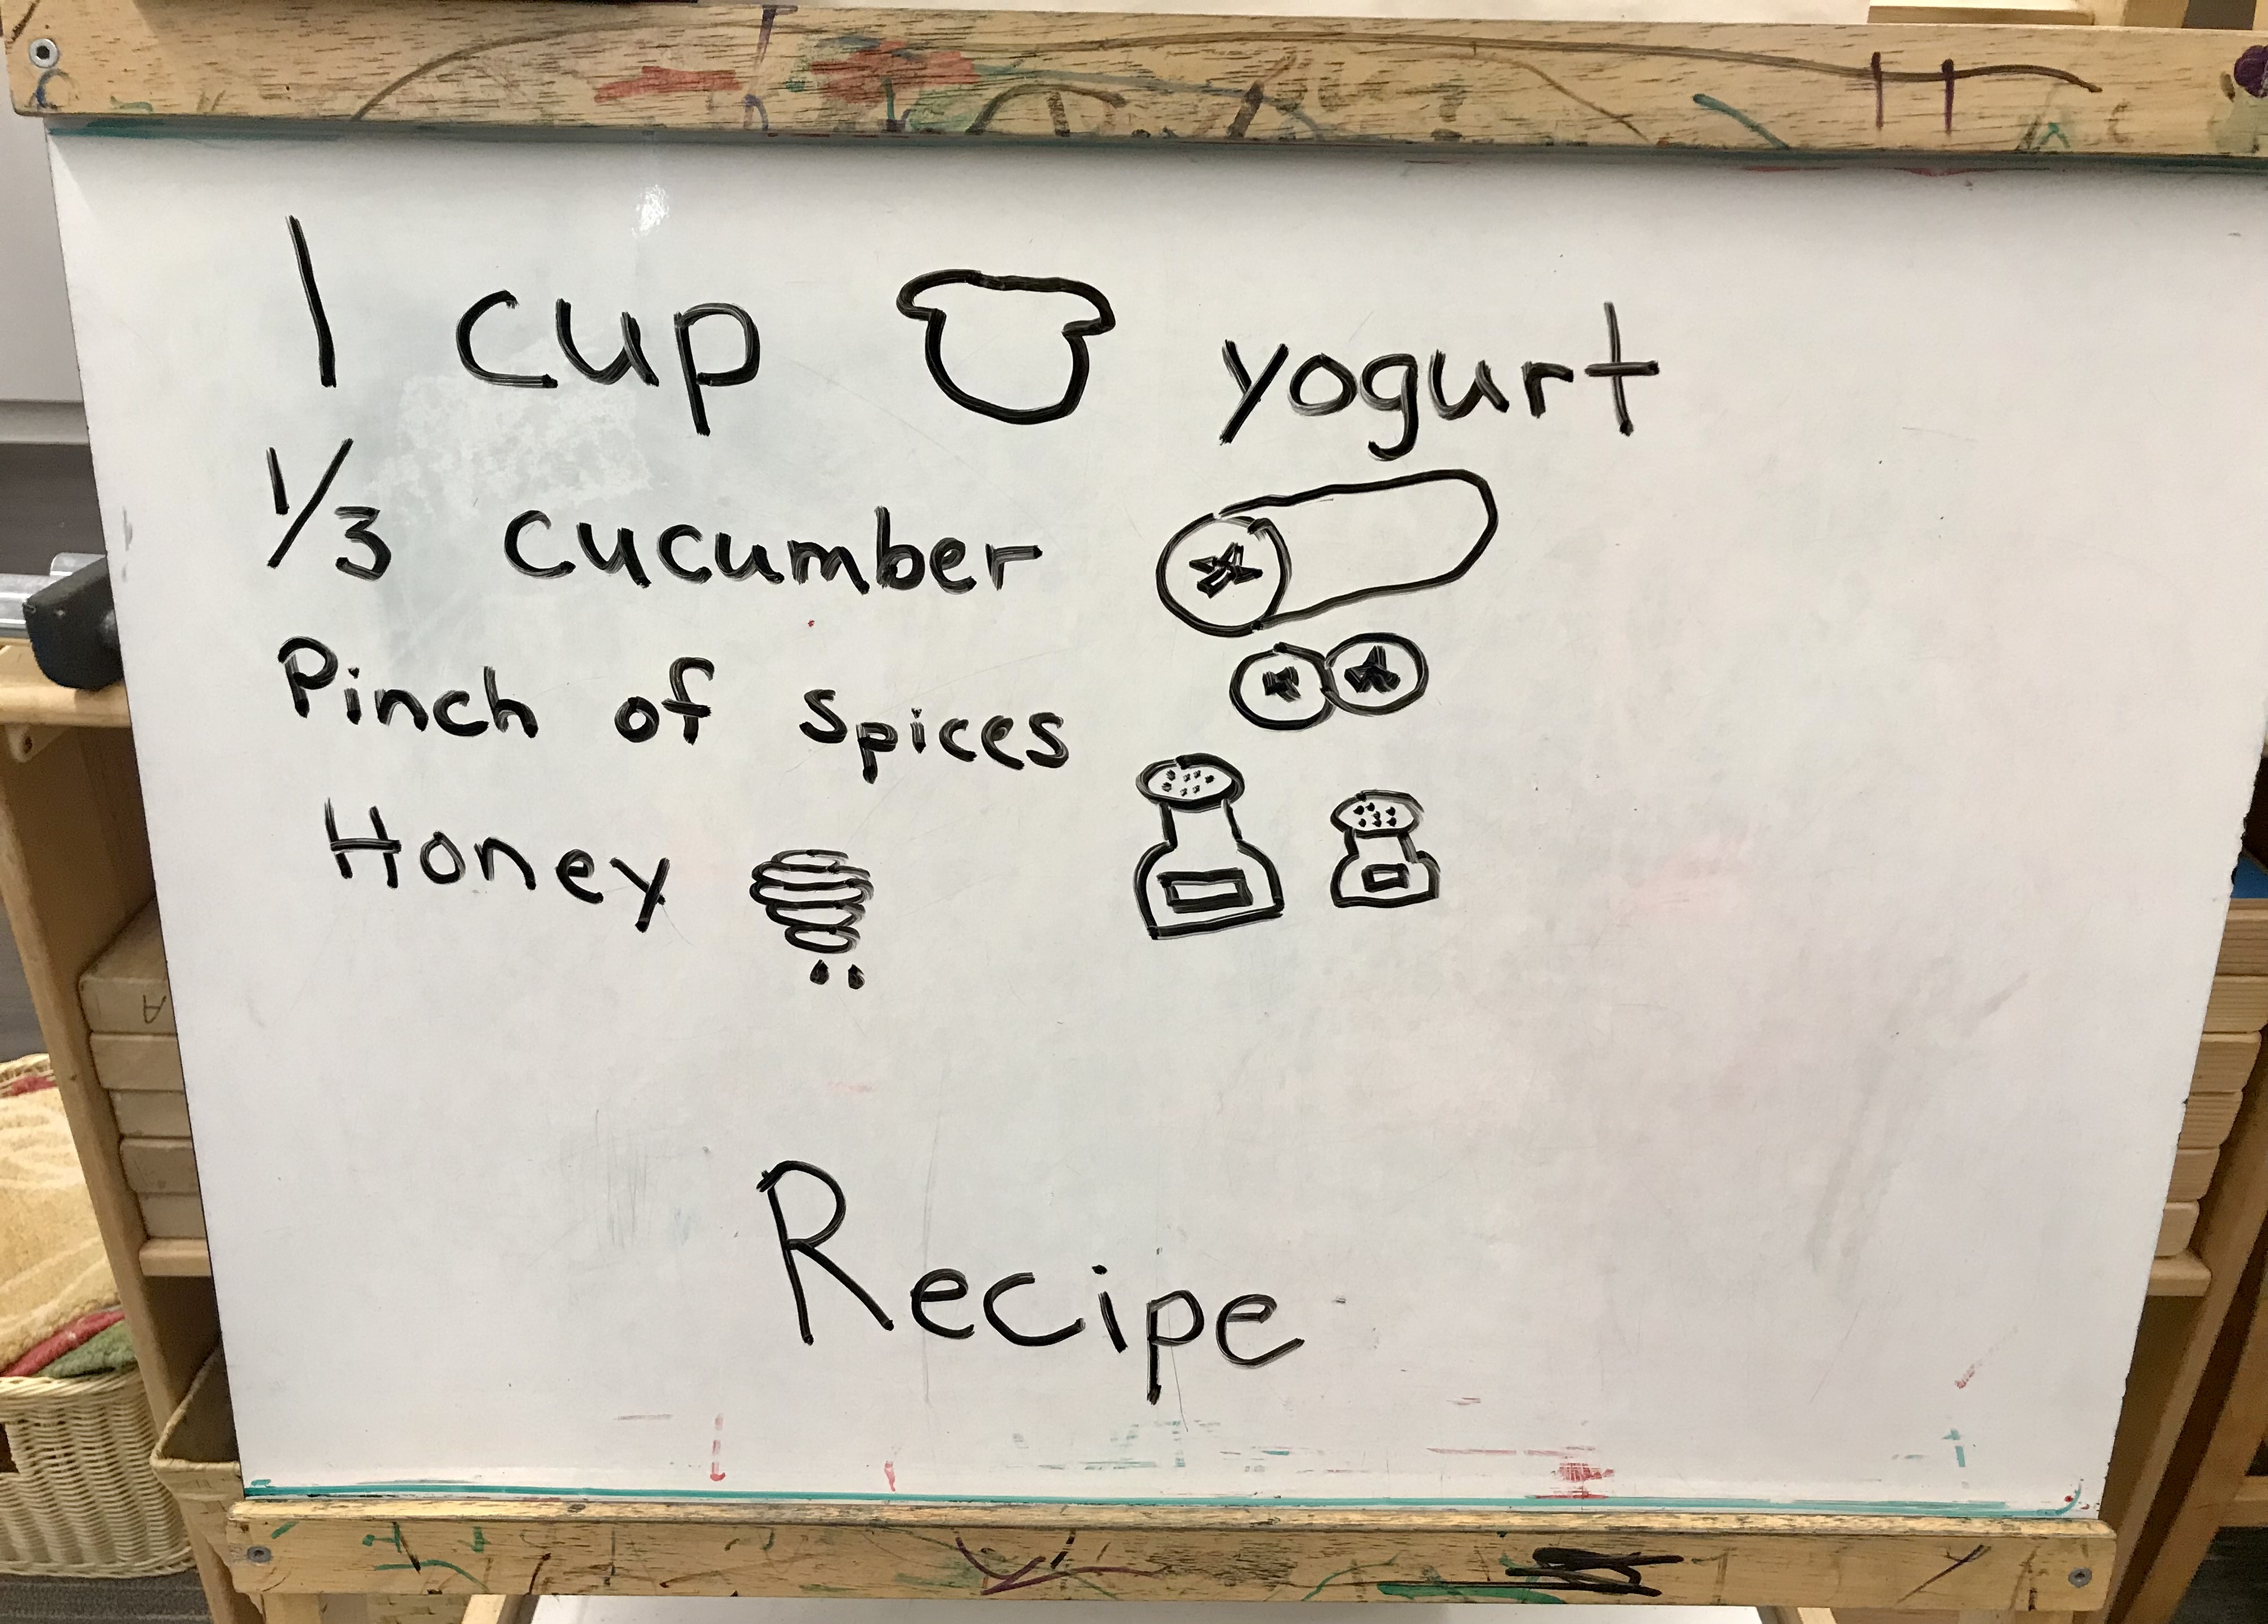 1 cup yogurt
1/3 cucumber
Pinch of spices
Honey
Recipe